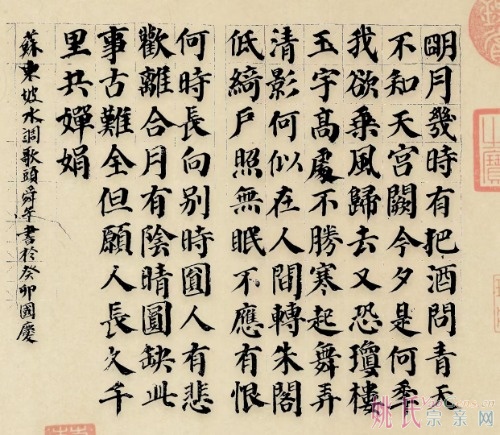 明月幾時有把酒問青天
不知天宮闕今夕是何年
我欲乘風歸去又恐瓊樓
玉宇高處不勝寒起舞弄
清影何似在人間轉朱閣
低綺戶照無眠不應有恨
何時長向别時圓人有悲
歡離合月有陰晴圓缺此
事古難全但願人長久千
里共嬋娟
蘇東坡水調歌頭舜年書於癸卯國慶
姚氏宗亲网